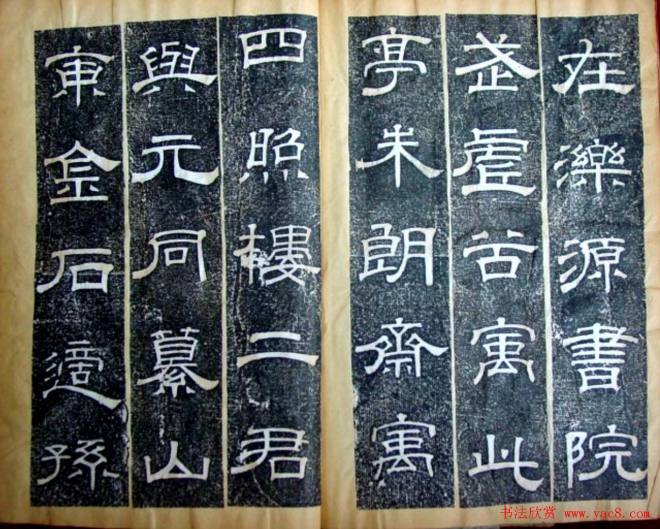 在濼源書院
武虛谷寓此
亭朱朗齋寓
四照樓二君
與元同纂山
東金石適孫
书法欣赏 www.yac8.com